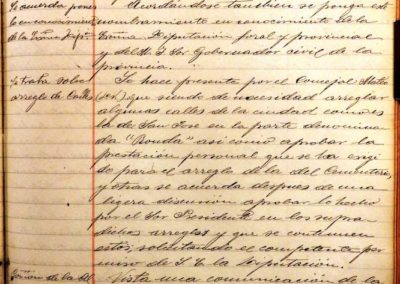 Se acuerda poner
Acordándose tambien se ponga este
en conocimiento
nombramiento en conocimiento de la
de la Excma Dipn.
Excma Diputación foral y provincial
y del M. I. Sor Gobernador civil de la
provincia.
Se trata sobre
Se hace presente por el Concejal
arreglo de Calles
que siendo de necesidad arreglar
algunas calles de la ciudad como es
la de San José en la parte denomina-
da "Ronda" así como aprobar la
prestación personal que se ha exigi-
do para el arreglo de la del Cementerio,
y otras se acuerda despues de una
ligera discusión aprobar lo hecho
por el Sor Presidente en los supra-
dichos arreglos y que se continuen
estos, solicitando el competente per-
miso de S. E. la Diputación.
de la
Vista una comunicación de la